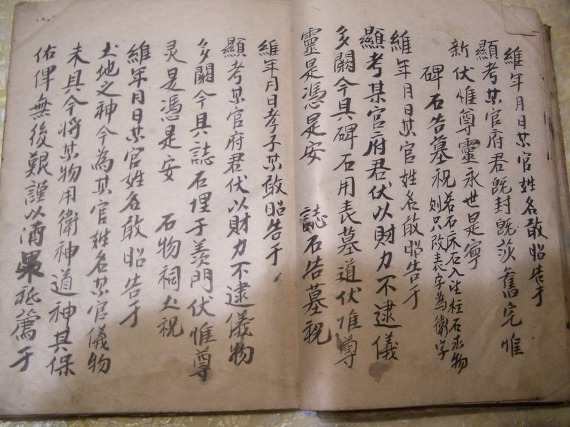 維年月日某官姓名敢昭告于
顯考某官府君旣封旣莎舊宅惟
新伏惟尊靈永世是寧
碑石告墓祝 若石床石入望柱石求物
則只改表字為衛字
維年月日某官姓名敢昭告于
顯考某官府君伏以財力不逮儀
多闕今具碑石用表墓道伏惟尊
靈是憑是安 誌石告墓祝
維年月日孝子某敢昭告于
顯考某官府君伏以財力不逮儀物
多闕今具誌石埋于羨門伏惟尊
灵是憑是安 石物祠土祝
維年月日某官姓名敢昭告于
土地之神今為某官姓名某官儀物
未具今將某物用衛神道神其保
佑俾無後艱謹以酒果祗薦于